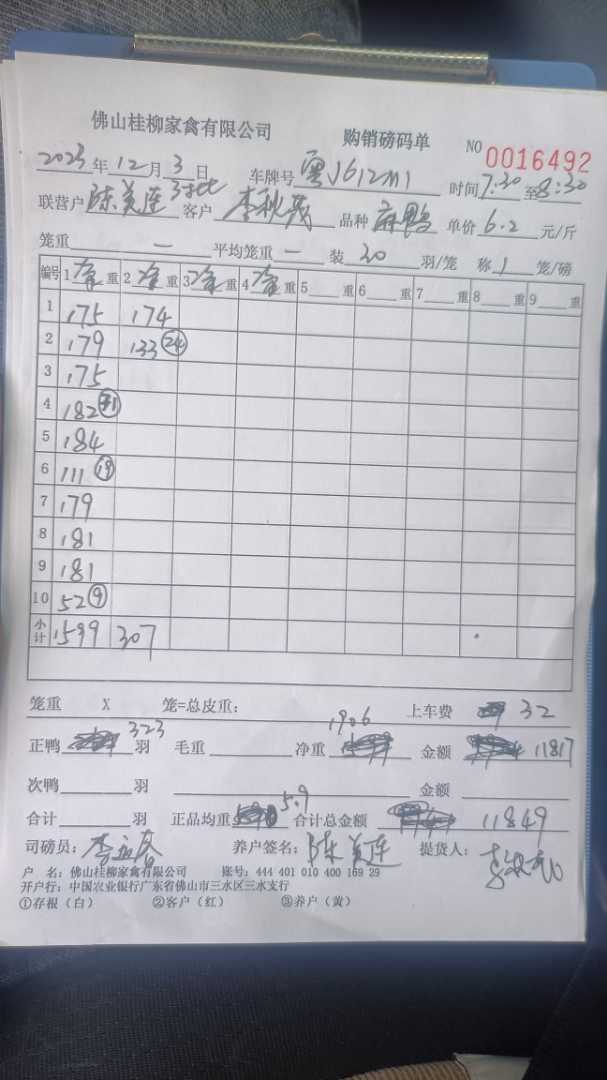 佛山桂柳家禽有限公司 购销磅码单 NO 0016492
2023年12月3日 车牌号 粤J612M1 时间7:30至8:30
联营户 陈美连 3批 客户 李秋茂 品种 麻鸭 单价 6.2 元/斤
笼重 一 平均笼重 一 装 20 羽/笼 称 1 笼/磅
编号 1 重 2 重 3 重 4 重 5 重 6 重 7 重 8 重 9 重
1 175 174
2 179 133 24
3 175
4 182 21
5 184
6 111 19
7 179
8 181
9 181
10 52 9
小计 1599 307
笼重 X 笼=总皮重: 上车费 32
正鸭 323 羽 毛重 净重 1906 金额 11817
次鸭 羽 金额
合计 羽 正品均重 5.9 合计总金额 11849
司磅员: 养户签名: 陈美连 提货人:
户 名: 佛山桂柳家禽有限公司 账号: 444 401 010 400 169 29
开户行: 中国农业银行广东省佛山市三水区三水支行
①存根(白) ②客户(红) ③养户(黄)